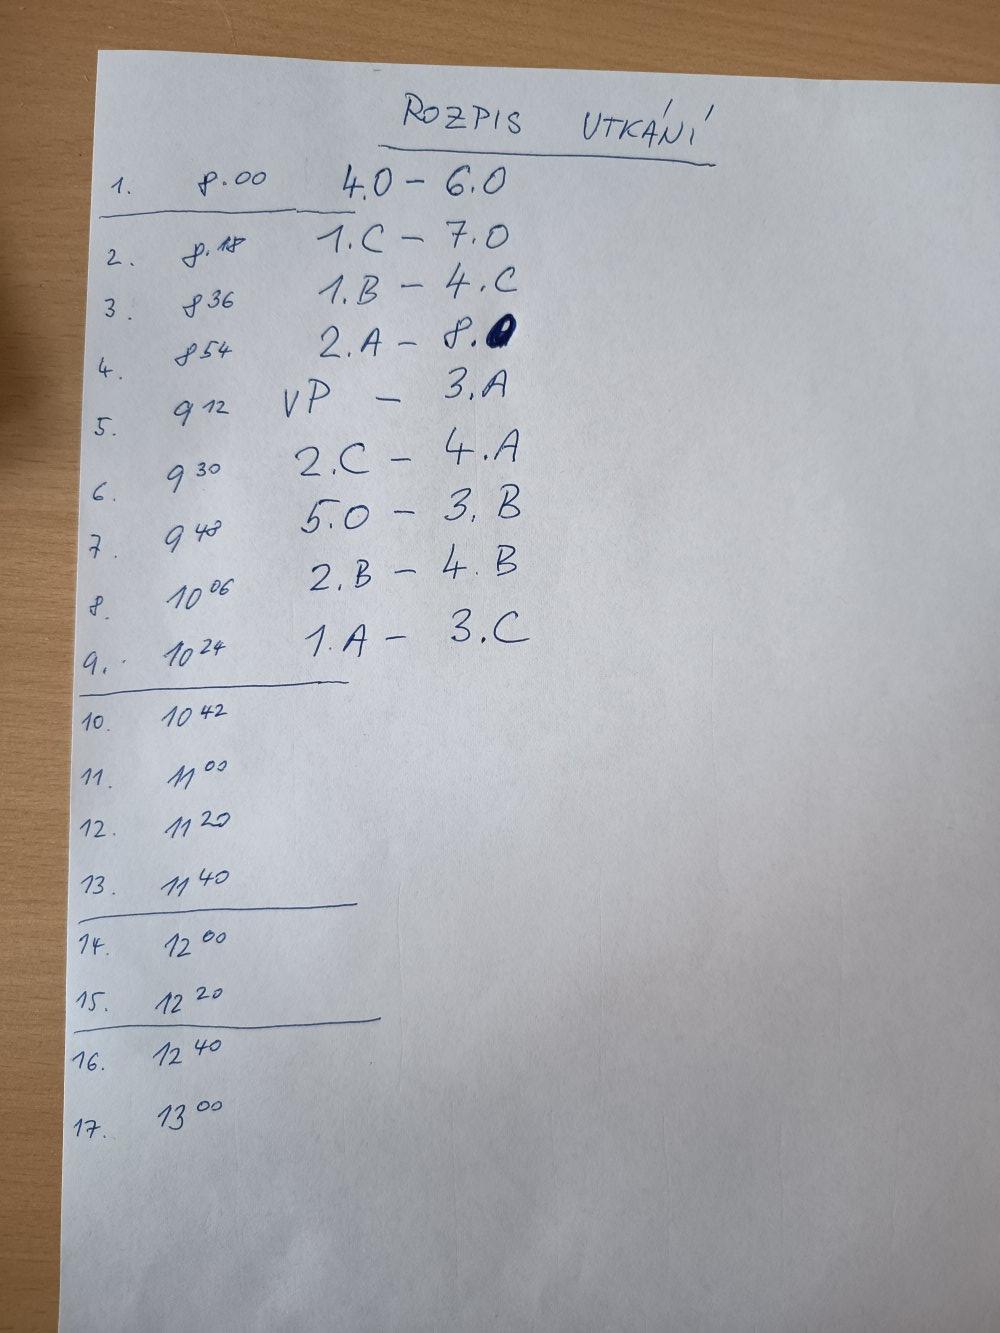 ROZPIS UTKÁNÍ
1. 8.00 4.O - 6.O
2. 8.18 1.C - 7.O
3. 8 36 1.B - 4.C
4. 8 54 2.A - 8.O
5. 9 12 VP - 3.A
6. 9 30 2.C - 4.A
7. 9 48 5.O - 3.B
8. 10 06 2.B - 4.B
9. 10 24 1.A - 3.C
10. 10 42
11. 11 00
12. 11 20
13. 11 40
14. 12 00
15. 12 20
16. 12 40
17. 13 00